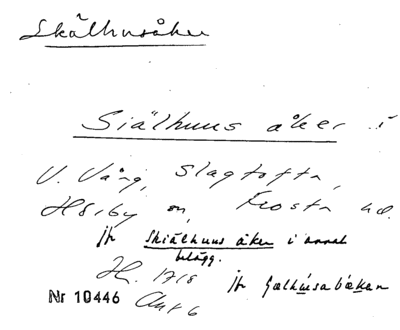 Skälhusåker
Siälhuus åker i
V. Vång, Slagtofta,
Hörby sn, Frosta hd.
jfr Skiälhuus åker i annat
belägg.
Hr. 1718 jfr Galhúsabækan
Nr 10446 Akt 6